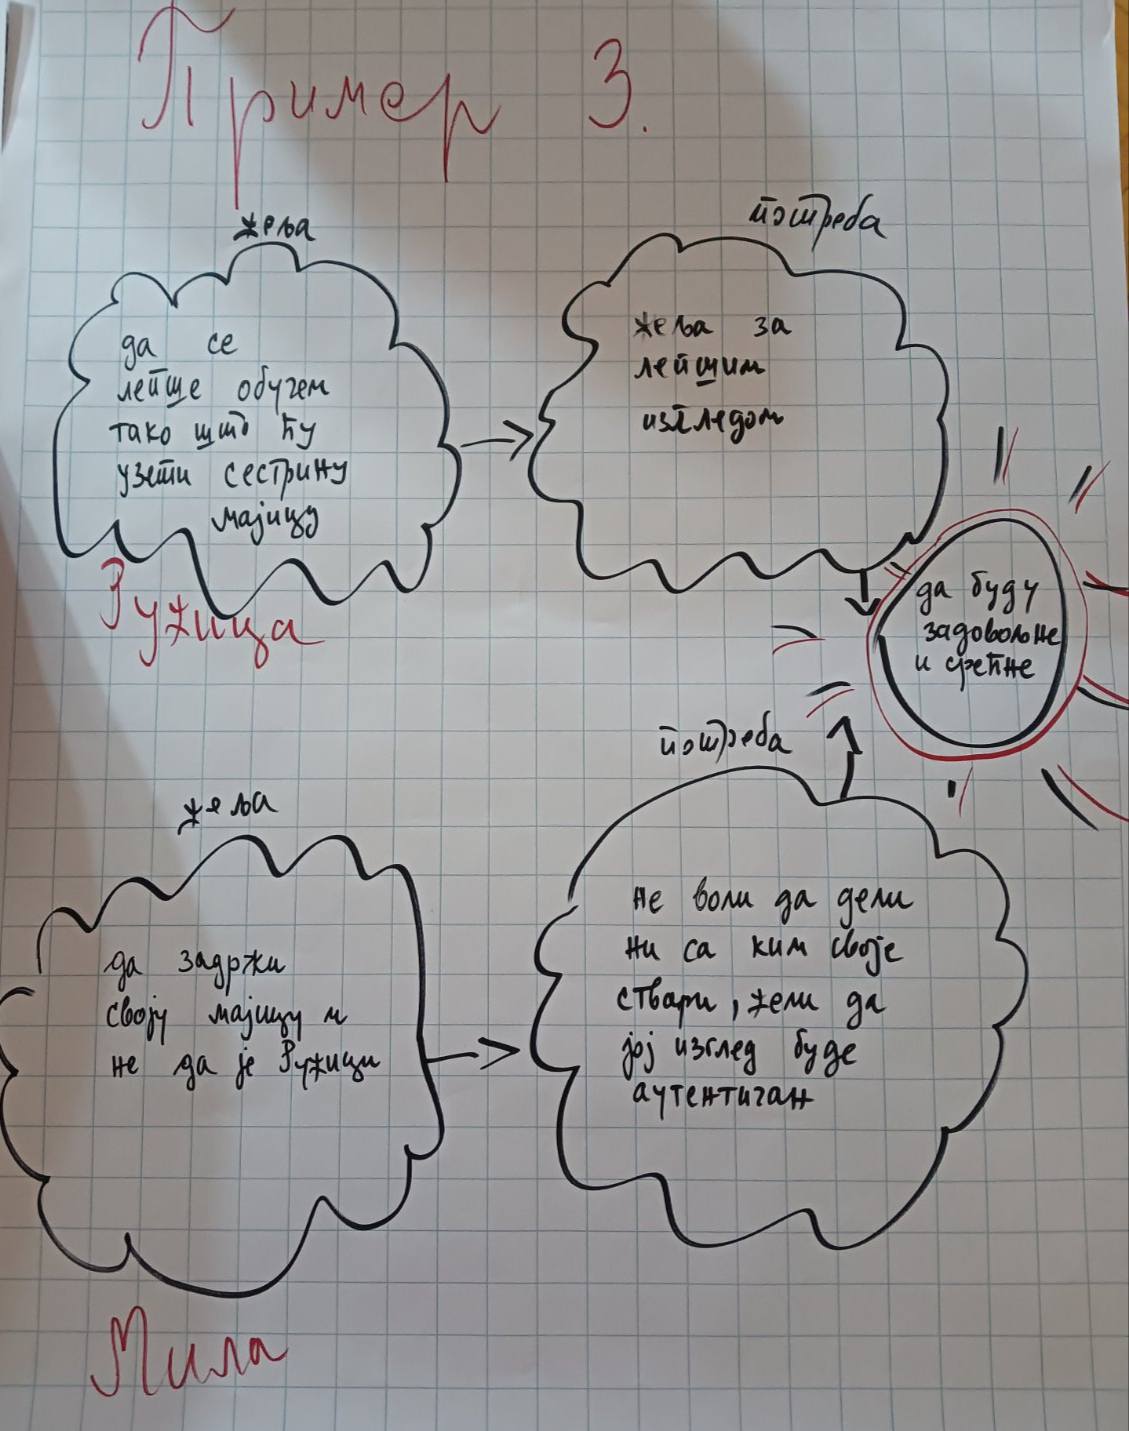 Пример 3.
жеља
да се
лепше обучем
тако што ћу
узети сестрину
мајицу
Ружица
потреба
жеља за
лепшим
изгледом
да буду
задовољне
и срећне
жеља
да задржи
своју мајицу и
не да је Ружици
Мила
потреба
не воли да дели
ни са ким своје
ствари, жели да
јој изглед буде
аутентичан